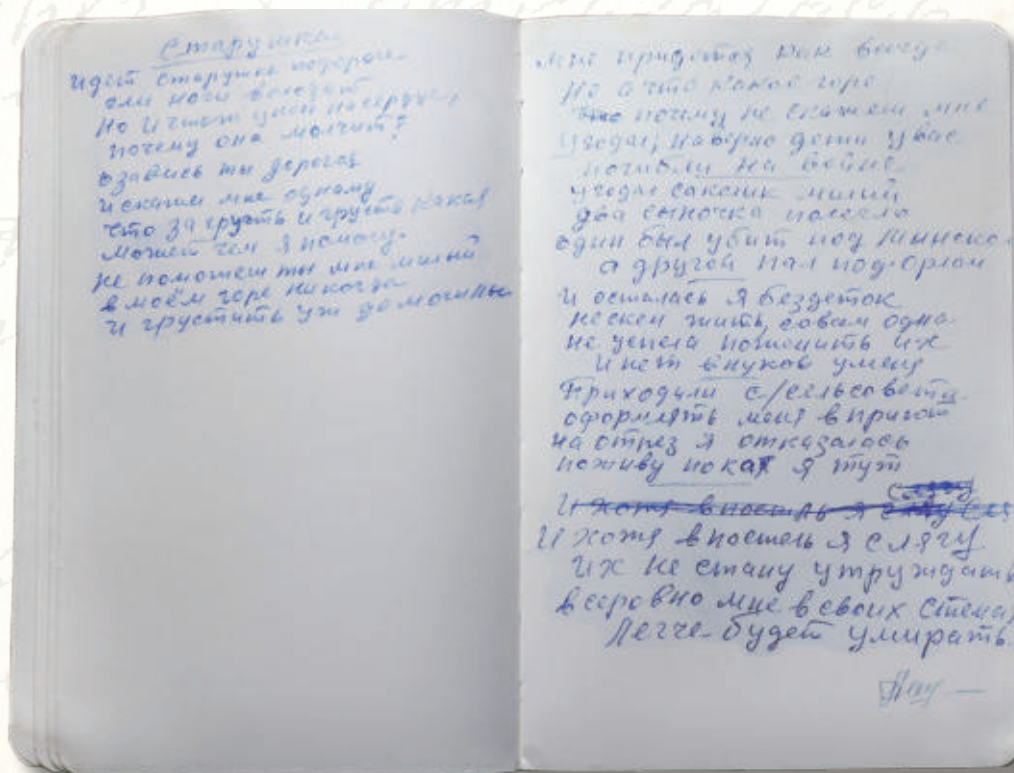 Старушка
идет старушка подорой
ели ноги волочит
но и чтож уней насердце,
почему она молчит?
ты дорогая
и скажи мне одному
что за грусть и грусть какая
может чем я помогу.
не поможеш ты мне милый
в моём горе никогда
и грустить уж до могилы
мне придётся как всегда
Но а что какое горе
почему не скажем мне
наверно дети у вас
погибли на войне
милый
два сыночка полегло
один был убит под Минском
а другой пал подорлом
И осталась я бездеток
нескем жить совам одна
не успела поженить их
и нет внуков уменя
Приходили с/сельсовета
оформлять меня в приют
на отрез я отказалась
поживу пока я тут
И хотя в постель я слягу
И хотя в постель я слягу
их не стану утруждать
всеровно мне в своих стенах
Легче будет умирать